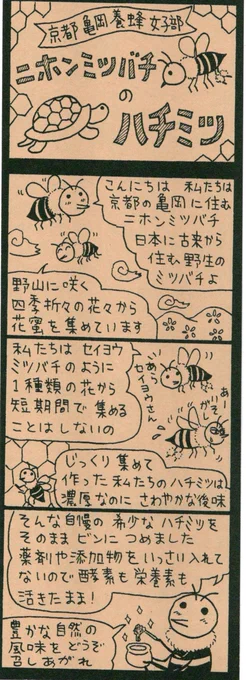 京都亀岡養蜂女子部
ニホンミツバチ
の
ハチミツ
こんにちは 私たちは
京都の亀岡に住む
ニホンミツバチ
日本に古来から
住む野生の
ミツバチよ
野山に咲く
四季折々の花々から
花蜜を集めています
私たちは セイヨウ
ミツバチのように
1種類の花から
短期間で集める
ことはしないの
あらセイヨウさん
あーいそがし
じっくり集めて
作った私たちのハチミツは
濃厚なのに さわやかな後味
そんな自慢の 希少な ハチミツを
そのまま ビンに つめました
薬剤や添加物を いっさい入れて
ないので酵素も栄養素も
活きたまま!
豊かな自然の
風味をどうぞ
召しあがれ